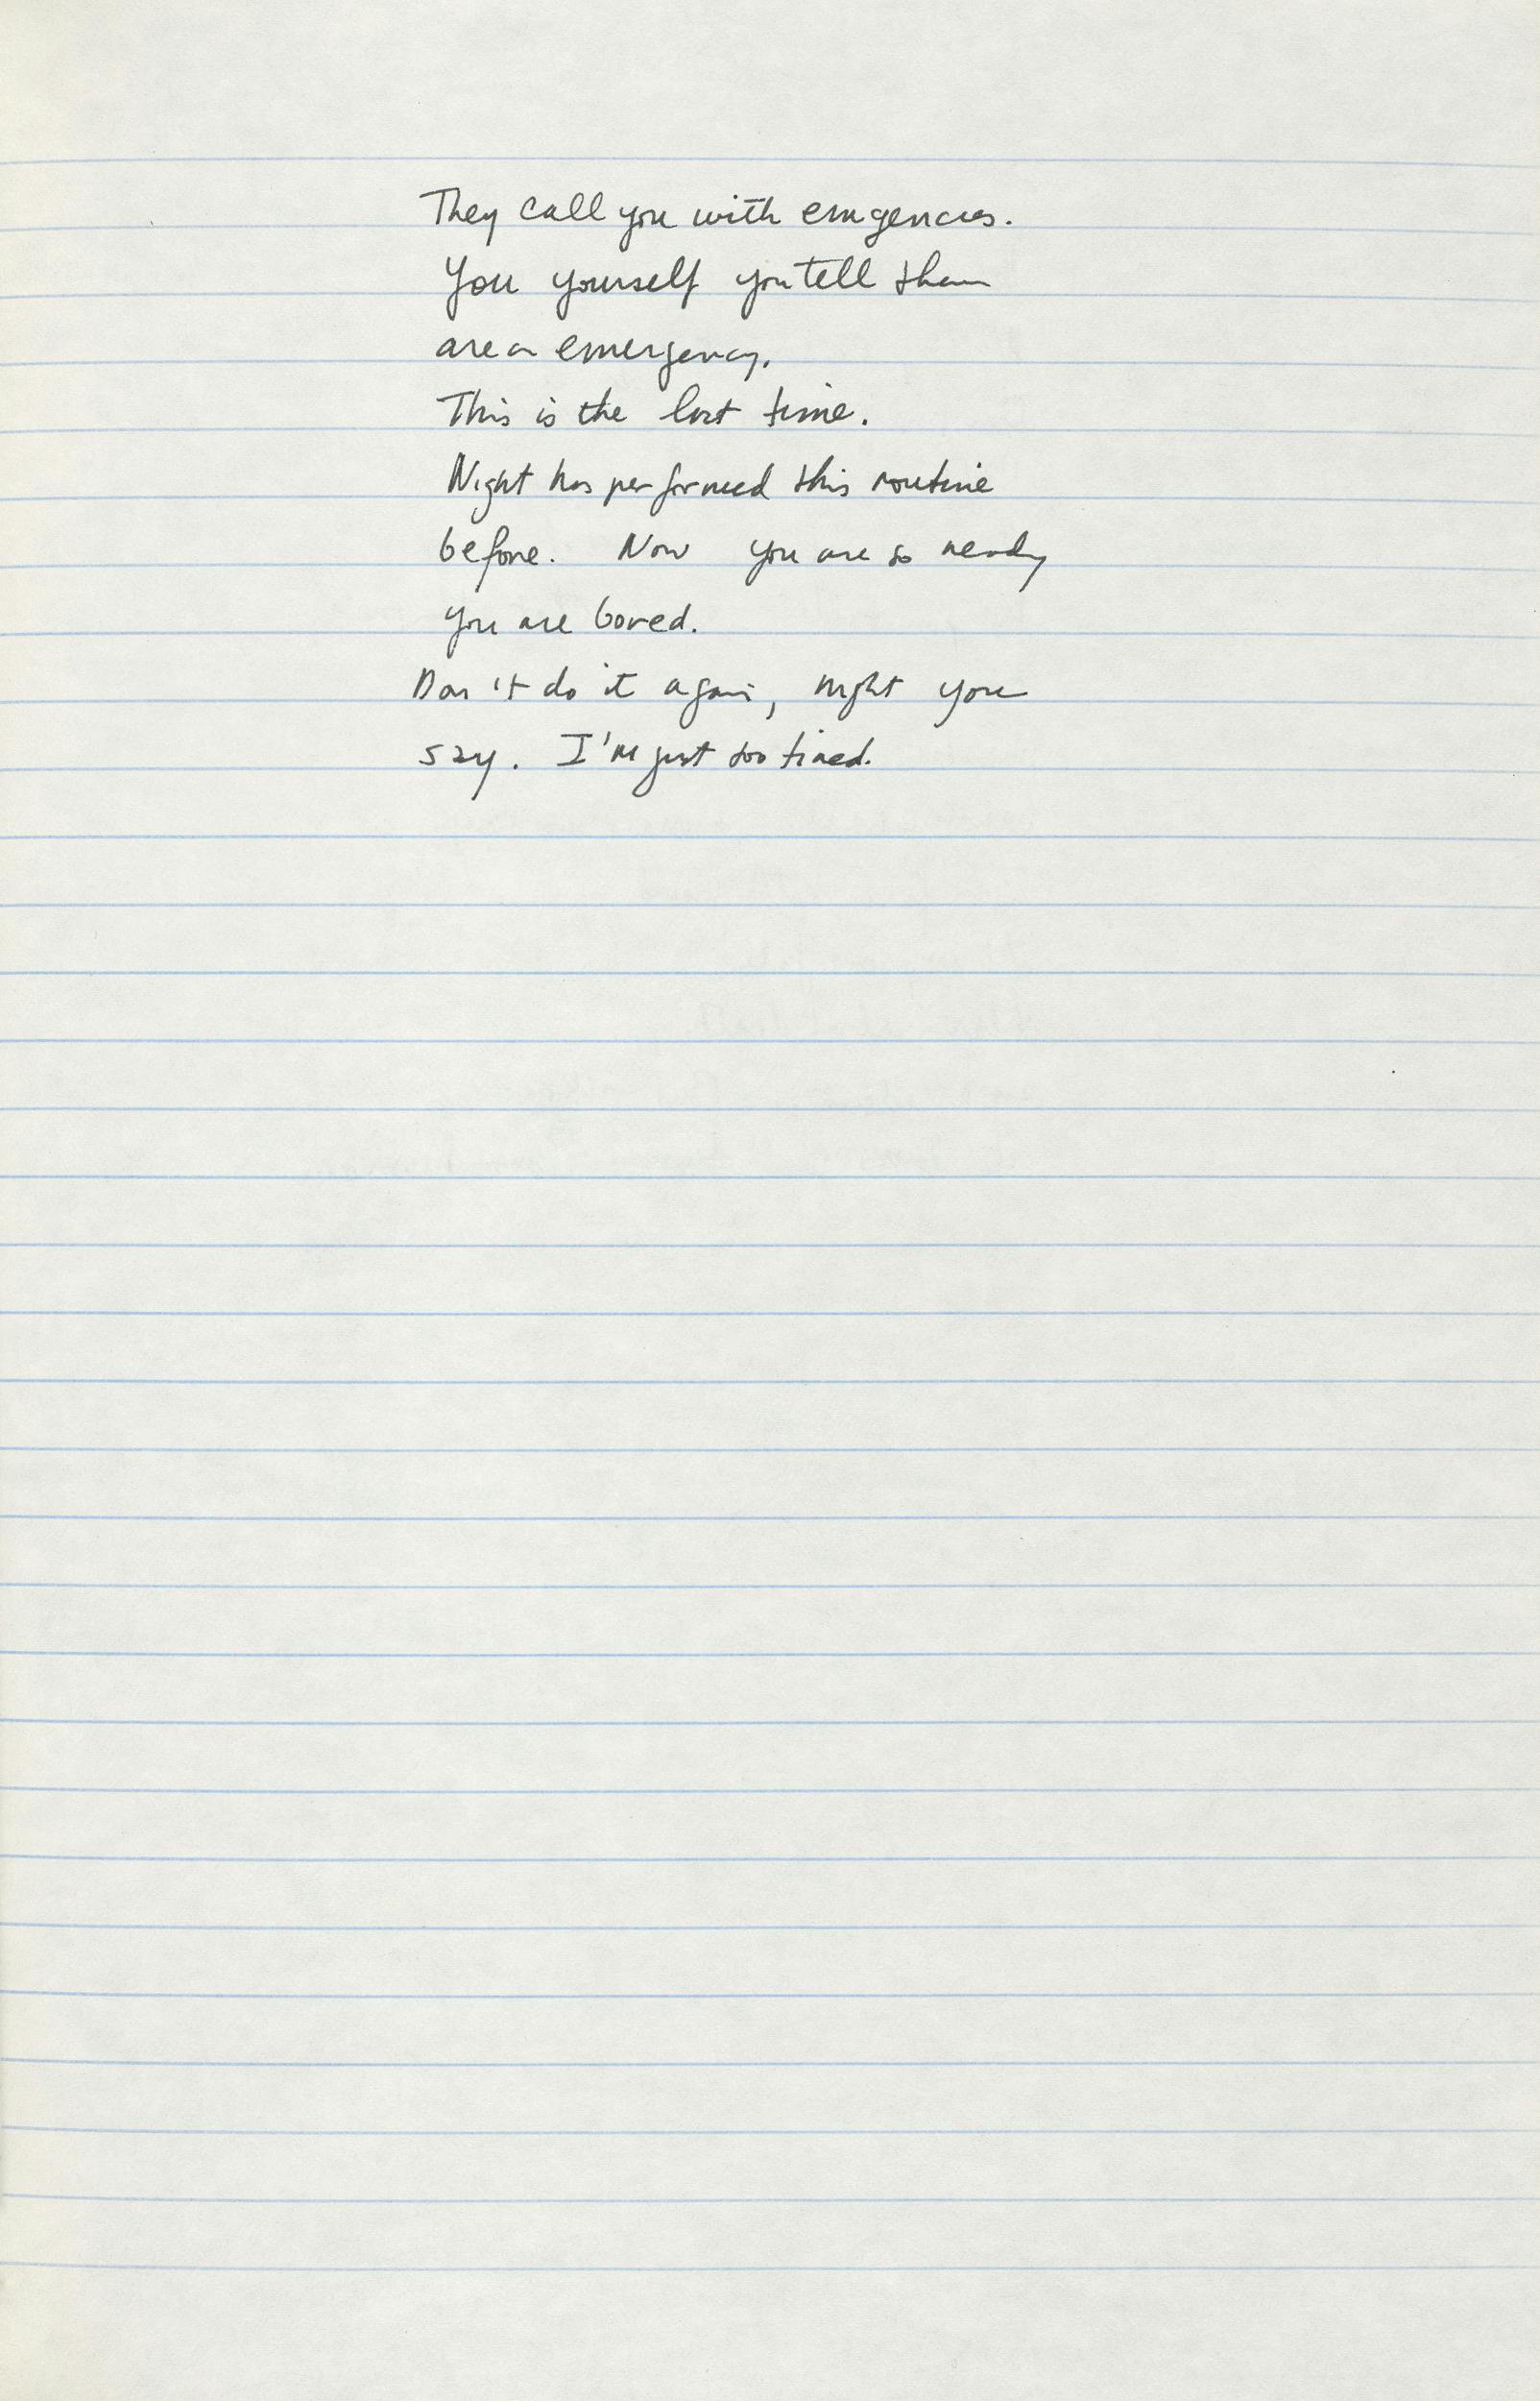 They call you with emergencies.
You yourself you tell them
are an emergency.
This is the last time.
Night has performed this routine
before. Now you are so ready
you are bored.
Don't do it again, night you
say. I'm just too tired.